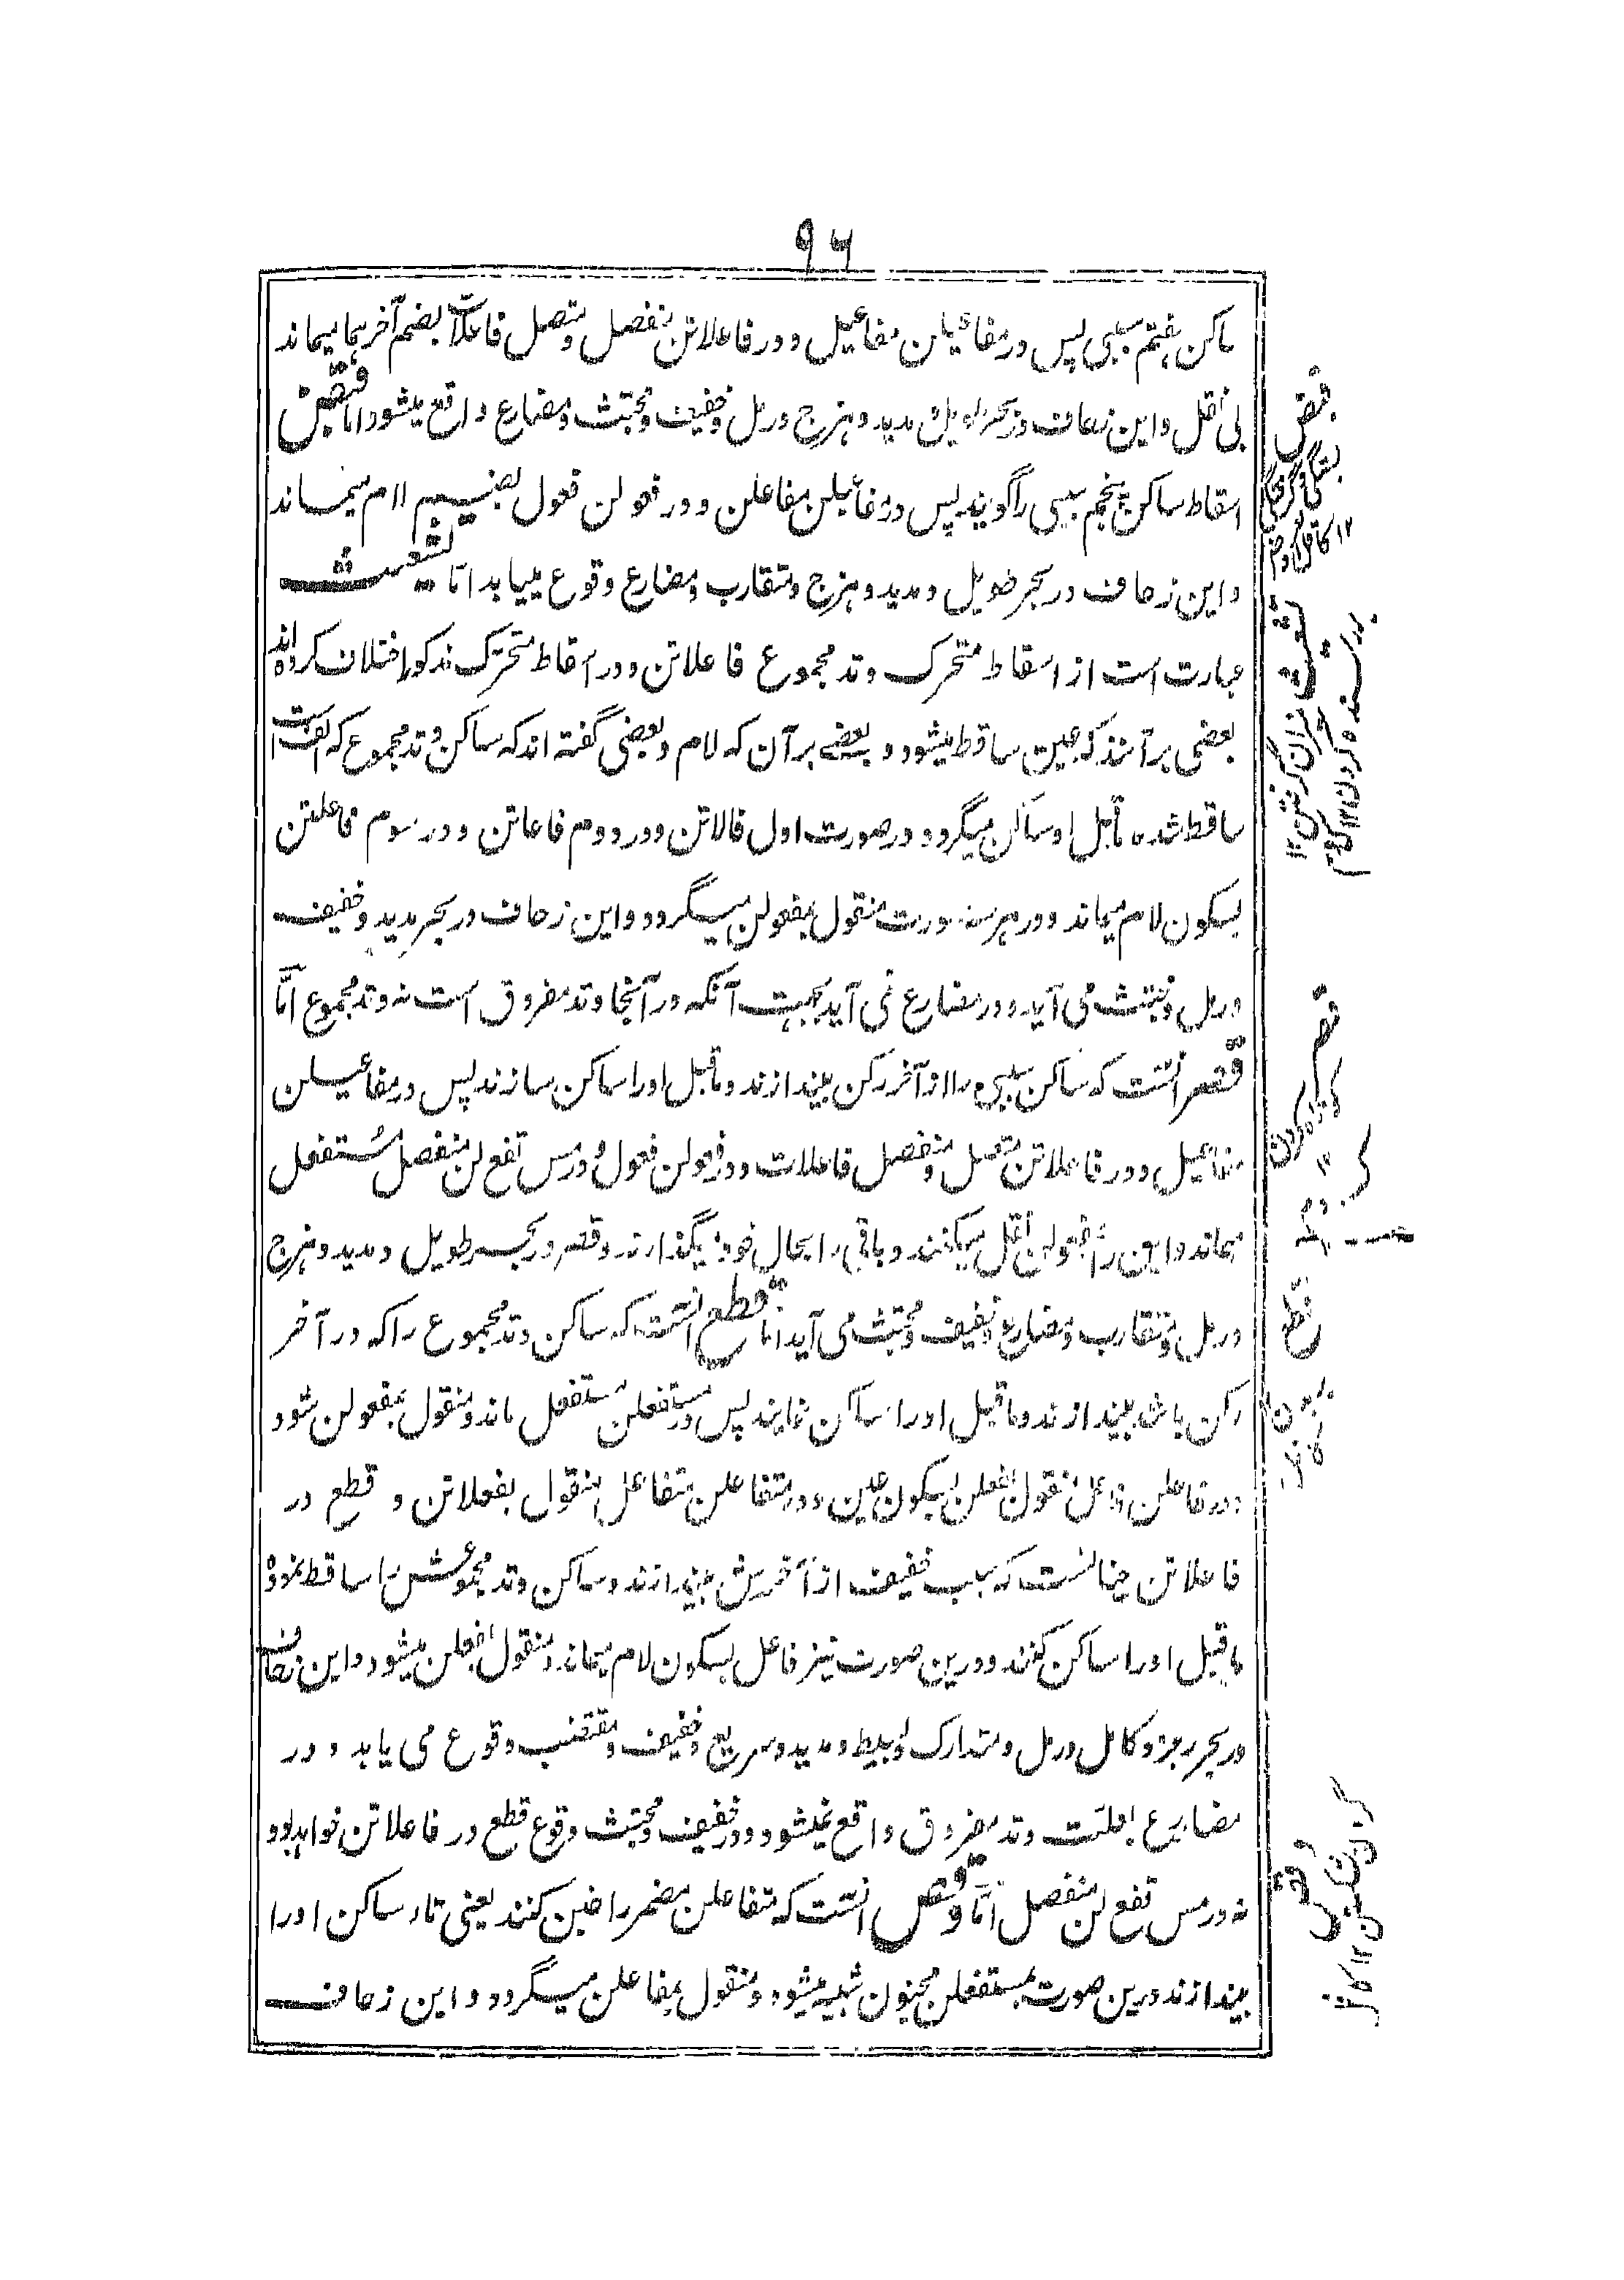 ۹۶
ساکن هفتم سببی پس در مفاعیلن مفاعیل و در فاعلاتن منفصل و متصل فاعلات بضم آخر بجا میماند
بی نقل و این زحاف در بحر طویل و مدید و هزج و رمل و خفیف و مجتث و مضارع واقع میشود اما قبض
اسقاط ساکن پنجم سببی را گویند پس در مفاعیلن مفاعلن و در فعولن فعول بضم لام میماند
و این زحاف در بحر طویل و مدید و هزج و متقارب و مضارع وقوع مییابد اما تشعیث
عبارت است از اسقاط متحرک وتد مجموع فاعلاتن و در اسقاط متحرک مذکور اختلاف کرده اند
بعضی برآنند که عین ساقط میشود و بعضے برآن که لام و بعضی گفته اند که ساکن وتد مجموع که الف است
ساقط شده ماقبل او ساکن میگردد و در صورت اول فالاتن و در دوم فاعاتن و در سوم فاعلتن
بسکون لام میماند و در هر سه صورت منقول بمفعولن میگردد و این زحاف در بحر مدید و خفیف
و رمل و مجتث می آید و در مضارع نمی آید بجهت آنکه در آنجا وتد مفروق است نه وتد مجموع امّا
قصر آنست که ساکن سببی را از آخر رکن بیندازند و ماقبل او را ساکن سازند پس در مفاعیلن
مفاعیل و در فاعلاتن متصل و منفصل فاعلات و در فعولن فعول و در مس تفع لن منفصل مستفعل
میماند و این را بمفعولن نقل میکنند و باقی را بحال خود بگذارند و قصر در بحر طویل و مدید و هزج
و رمل و متقارب و مضارع و خفیف و مجتث می آید اما قطع آنست که ساکن وتد مجموع را که در آخر
رکن باشد بیندازند و ماقبل او را ساکن نمایند پس در مستفعلن مستفعل ماند و منقول بمفعولن شود
و در فاعلن فاعل منقول بفعلن بسکون عین و در متفاعلن متفاعل منقول بفعلاتن و قطع در
فاعلاتن چنانست که سبب خفیف از آخرش بیندازند و ساکن وتد مجموعش را ساقط نموده
ماقبل او را ساکن کنند و درین صورت نیز فاعل بسکون لام میماند و منقول بفعلن میشود و این زحاف
در بحر رجز و کامل و رمل و متدارک و بسیط و مدید و سریع و خفیف و مقتضب وقوع می یابد و در
مضارع بعلت وتد مفروق واقع نمیشود و در خفیف و مجتث وقوع قطع در فاعلاتن خواهد بود
نه در مس تفع لن منفصل امّا وقص آنست که متفاعلن مضمر را خبن کنند یعنی تاء ساکن او را
بیندازند درین صورت بمستفعلن مخبون شبیه میشود و منقول بمفاعلن میگردد و این زحاف
قبض
بستگی و گرفتگی
تشعیث
قصر
کوتاه کردن
قطع
بریدن
وقص
گردن شکستن ۱۲